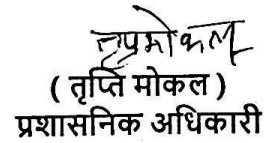 तृप्तीमोकल
( तृप्ति मोकल )
प्रशासनिक अधिकारी